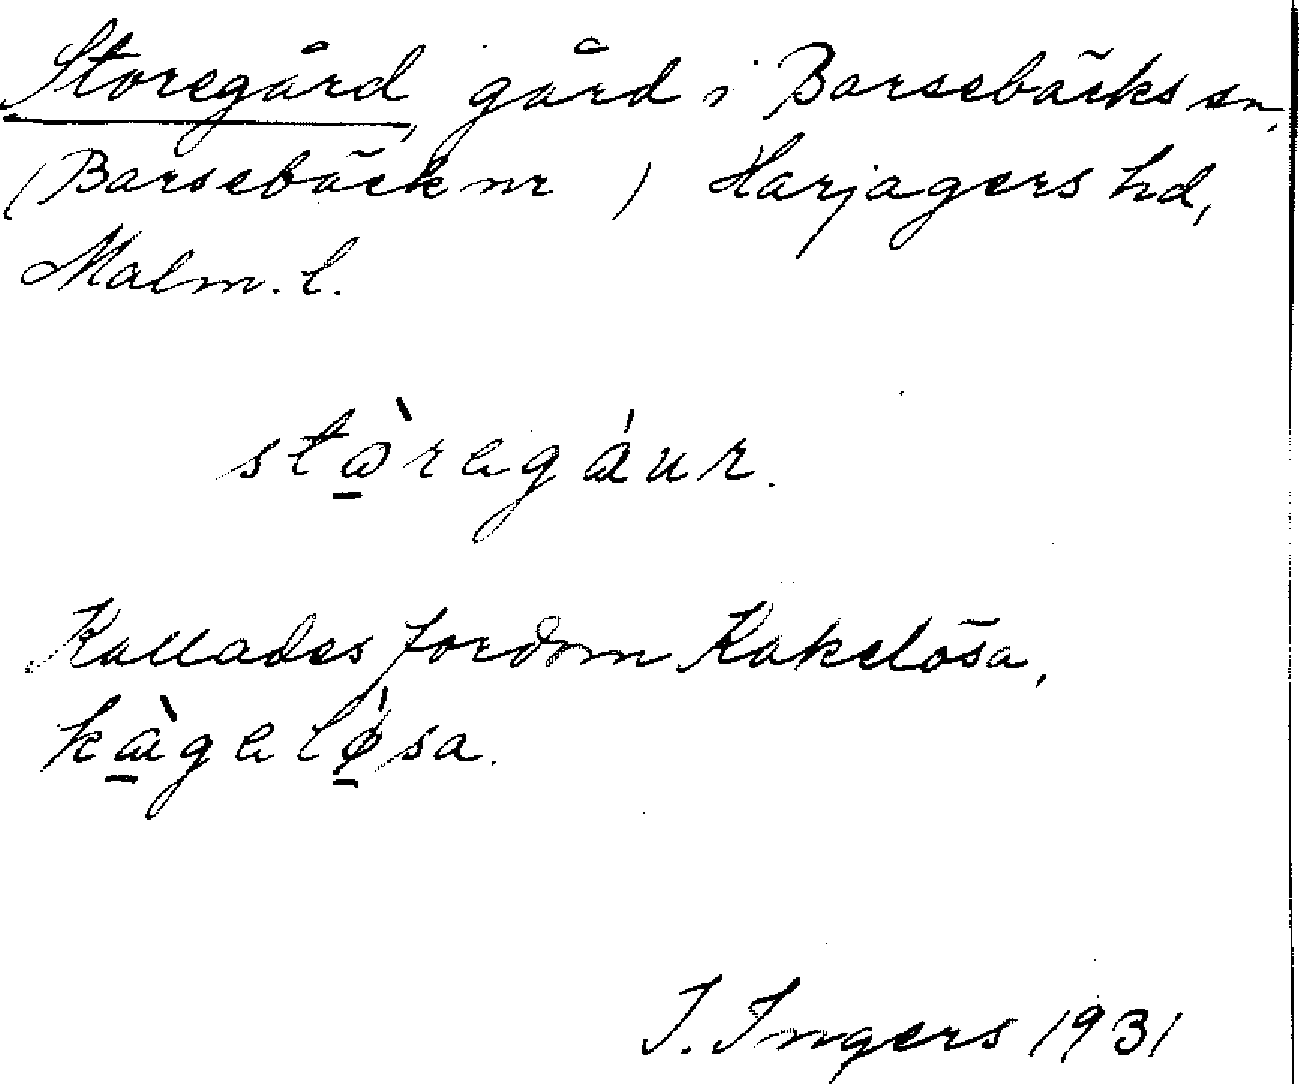 Storegård, gård i Barsebäcks sn,
(Barsebäck nr ) Harjagers hd,
Malm. l.
stò̱regáur.
Kallades fordom Kakelösa,
kà̱gelǿ̱sa.
I. Ingers 1931